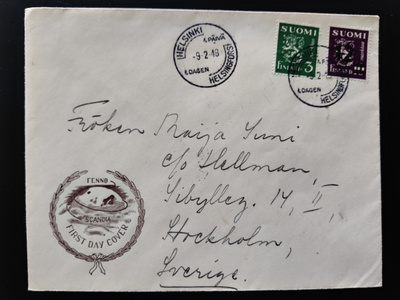 HELSINKI
1.PÄIVÄ
-9.2.48
1.DAGEN
HELSINGFORS
SUOMI
FINLAND 3
SUOMI
FINLAND
1.DAGEN
HELSINGFORS
Fröken Maija Suni
c/o Hellman,
Sibylleg. 14, II,
Stockholm,
Sverige.
FENNO
SCANDIA
FIRST DAY COVER